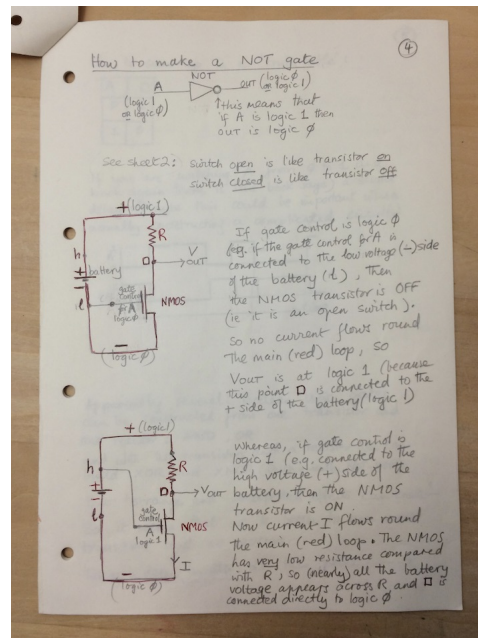 4
How to make a NOT gate
NOT
A
OUT (logic φ
or logic 1)
(logic 1
or logic φ)
↑this means that
if A is logic 1 then
OUT is logic φ
See sheet 2: switch open is like transistor on
switch closed is like transistor off
+(logic 1)
R
h
V
OUT
+
battery
−
l
gate
control
A
logic φ
NMOS
−
(logic φ)
If gate control is logic φ
(eg. if the gate control for A is
connected to the low voltage (−) side
of the battery (l), then
the NMOS transistor is OFF
(ie it is an open switch).
So no current flows round
the main (red) loop, so
VOUT is at logic 1 (because
this point □ is connected to the
+ side of the battery (logic 1)
+ (logic 1)
h
R
+
−
VOUT
l
gate
control
A
logic 1
NMOS
I
−
(logic φ)
whereas, if gate control is
logic 1 (e.g. connected to the
high voltage (+) side of the
battery, then the NMOS
transistor is ON.
Now current I flows round
the main (red) loop. The NMOS
has very low resistance compared
with R, so (nearly) all the battery
voltage appears across R and □ is
connected directly to logic φ.